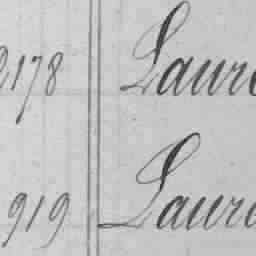 2178 Laure
919 Laure